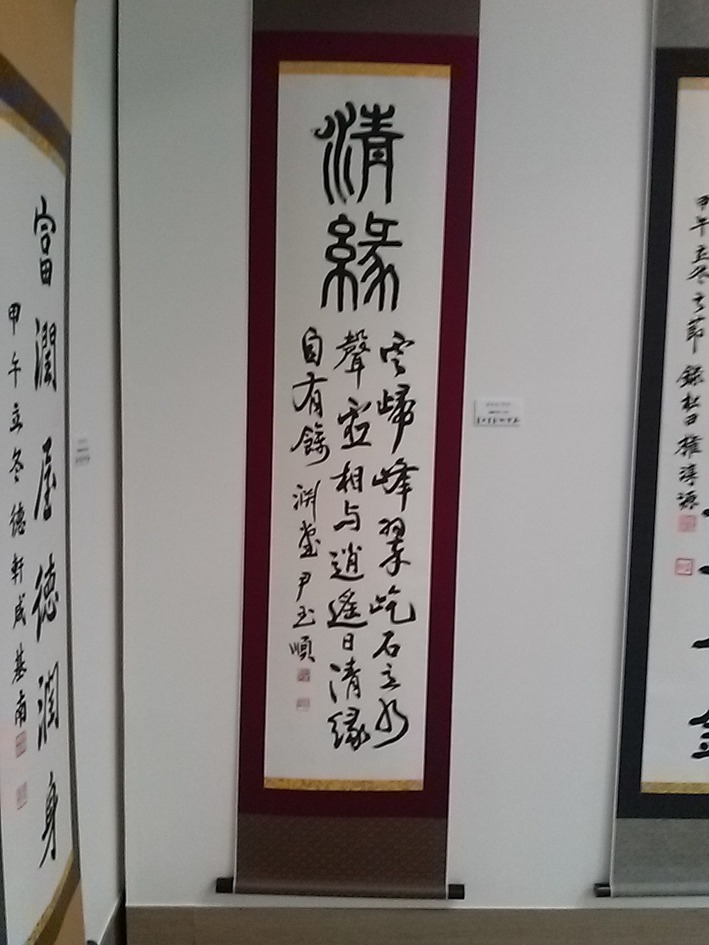 甲午立冬之節 錄 權
清緣
雲歸峰翠屹石立水
聲虛相与逍遙日清緣
自有餘 渊堂 尹玉順
富潤屋德潤身
甲午立冬德軒 基南